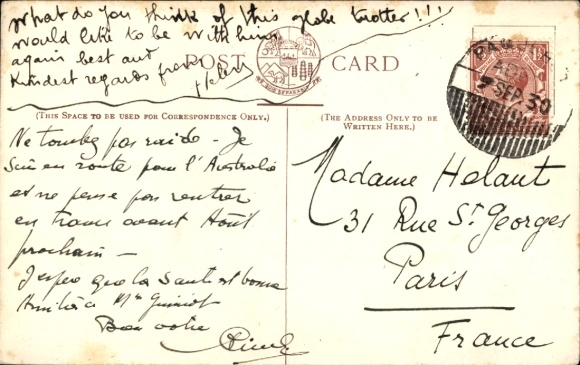 what do you think of this globe trotter!!!
would like to be with him
again best and
Kindest regards from
POST CARD
(THIS SPACE TO BE USED FOR CORRESPONDENCE ONLY.)
(THE ADDRESS ONLY TO BE
WRITTEN HERE.)
7 SEP 30
Ne tombez pas raide - Je
suis en route pour l'Australie
et ne pense pas rentrer
en France avant Août
prochain -
J'espère que la santé est bonne
Amitiés à Mme
Bien votre
Madame Helaut
31 Rue St. Georges
Paris
France